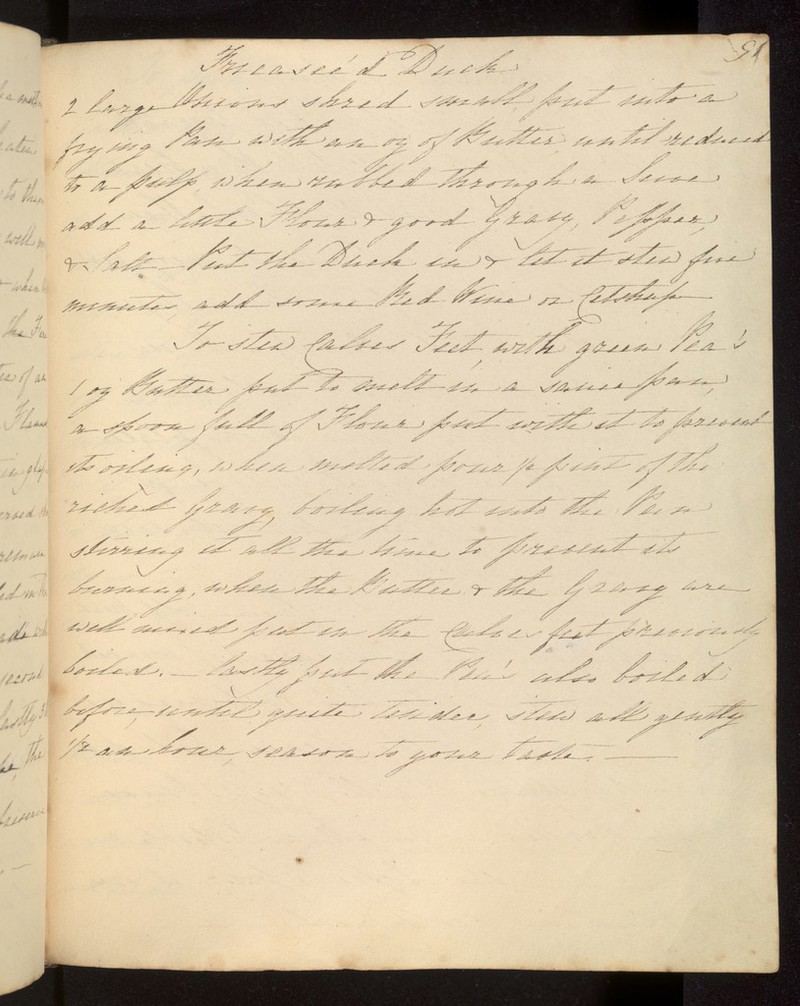 91
Fricasee'd Duck
2 large Onions shred small, put into a
frying Pan with an oz of Butter, until reduced
to a pulp, when rubbed through a Seive
add a little Flour & good Gravy, Pepper,
& Salt – Put the Duck in & let it stew five
minutes, add some Red Wine or Catshup
To stew Calves Feet, with green Pea's
1 oz Butter put to melt in a sauce pan,
a spoon full of Flour put with it to prevent
its oiling, when melted pour ½ pint of the
richest Gravy, boiling hot into the Pan
stirring it all the time to prevent its
burning, when the Butter & the Gravy are
well mixed put in the Calves feet previously
boiled. – lastly put the Pea's also boiled
before, until quite tender, stew all gently
½ an hour, season to your taste. —